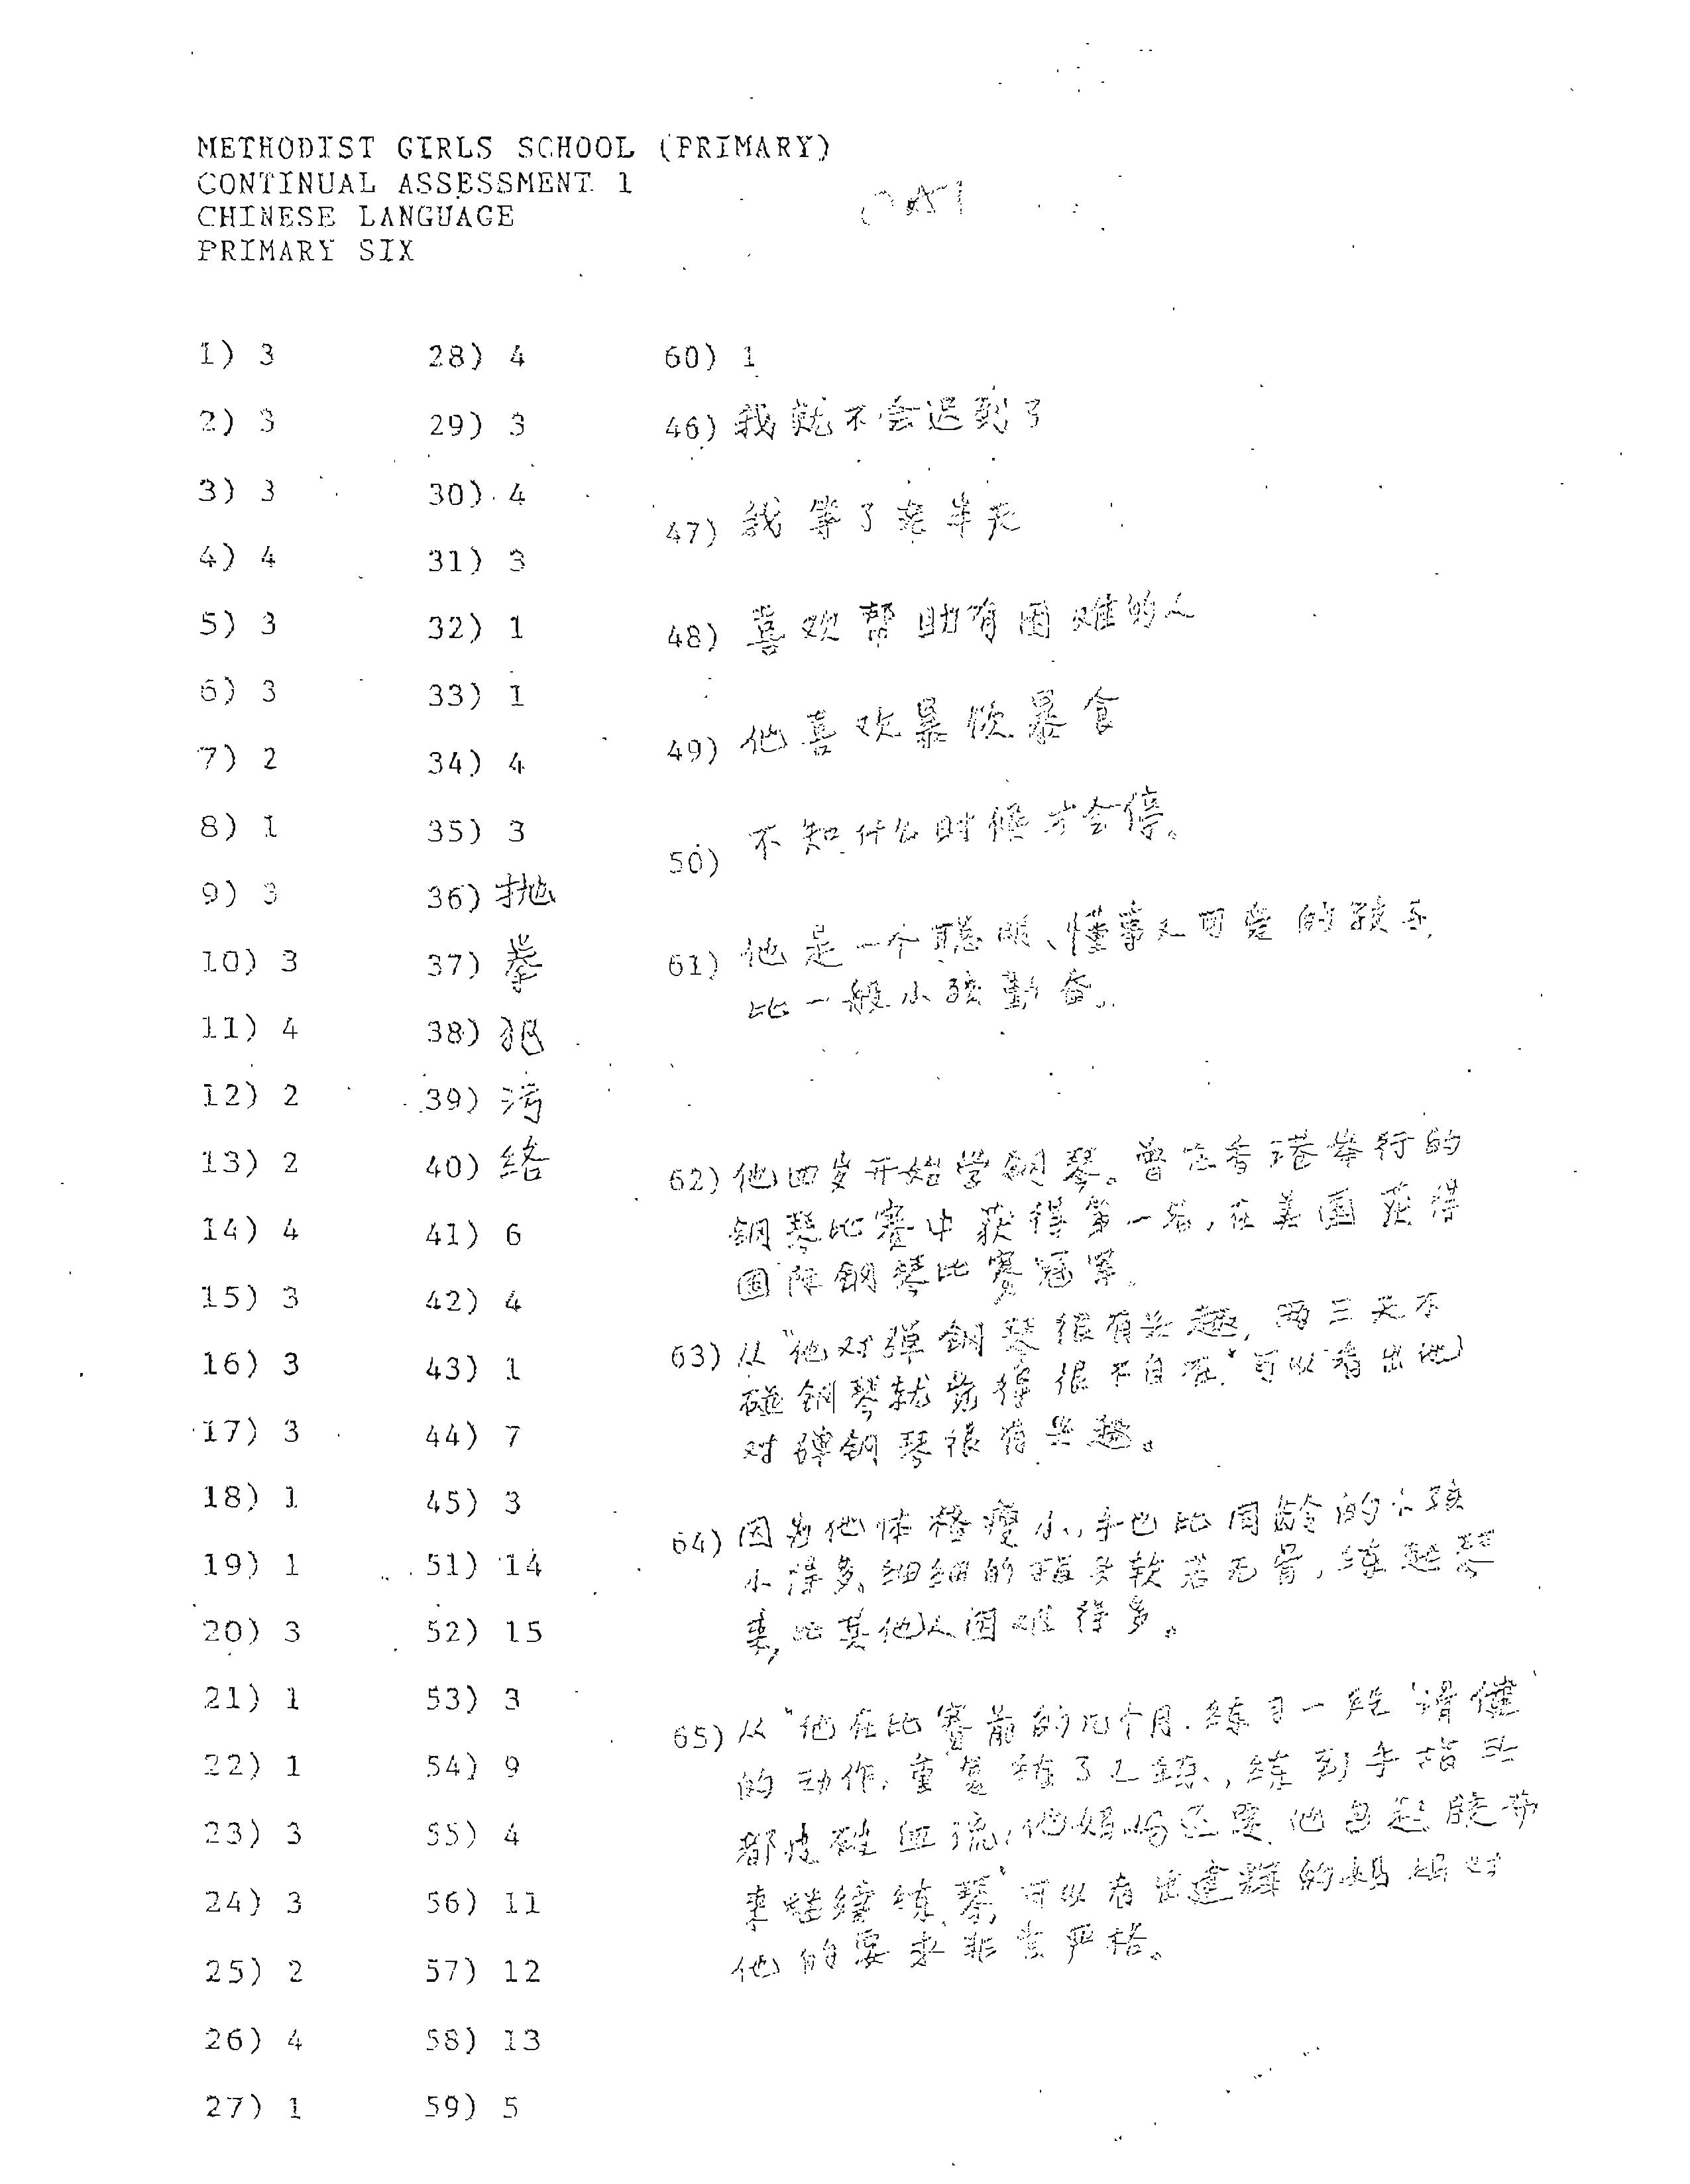 METHODIST GIRLS SCHOOL (PRIMARY)
CONTINUAL ASSESSMENT 1
CHINESE LANGUAGE
PRIMARY SIX
1) 3
2) 3
3) 3
4) 4
5) 3
6) 3
7) 2
8) 1
9) 3
10) 3
11) 4
12) 2
13) 2
14) 4
15) 3
16) 3
17) 3
18) 1
19) 1
20) 3
21) 1
22) 1
23) 3
24) 3
25) 2
26) 4
27) 1
28) 4
29) 3
30) 4
31) 3
32) 1
33) 1
34) 4
35) 3
36) 抛
37) 拳
38) 犯
39) 污
40) 络
41) 6
42) 4
43) 1
44) 7
45) 3
51) 14
52) 15
53) 3
54) 9
55) 4
56) 11
57) 12
58) 13
59) 5
60) 1
46) 我就不会迟到了
47) 我等了老半天
48) 喜欢帮助有困难的人
49) 他喜欢暴饮暴食
50) 不知什么时候才会停。
61) 他是一个聪明、懂事又可爱的孩子,
比一般小孩勤奋。
62) 他四岁开始学钢琴。曾在香港举行的
钢琴比赛中获得第一名,在美国获得
国际钢琴比赛冠军。
63) 从"他对弹钢琴很有兴趣,两三天不
碰钢琴就觉得很不自在"可以看出他
对弹钢琴很有兴趣。
64) 因为他体格瘦小,手也比同龄的小孩
小得多,细细的指头软若无骨,练起琴
来,比其他人困难得多。
65) 从"他在比赛前的几个月,练习一段
的动作,重复练了又练,练到手指头
都皮破血流,他妈妈还要他包起胶布
来继续练琴"可以看出建辉的妈妈对
他的要求非常严格。